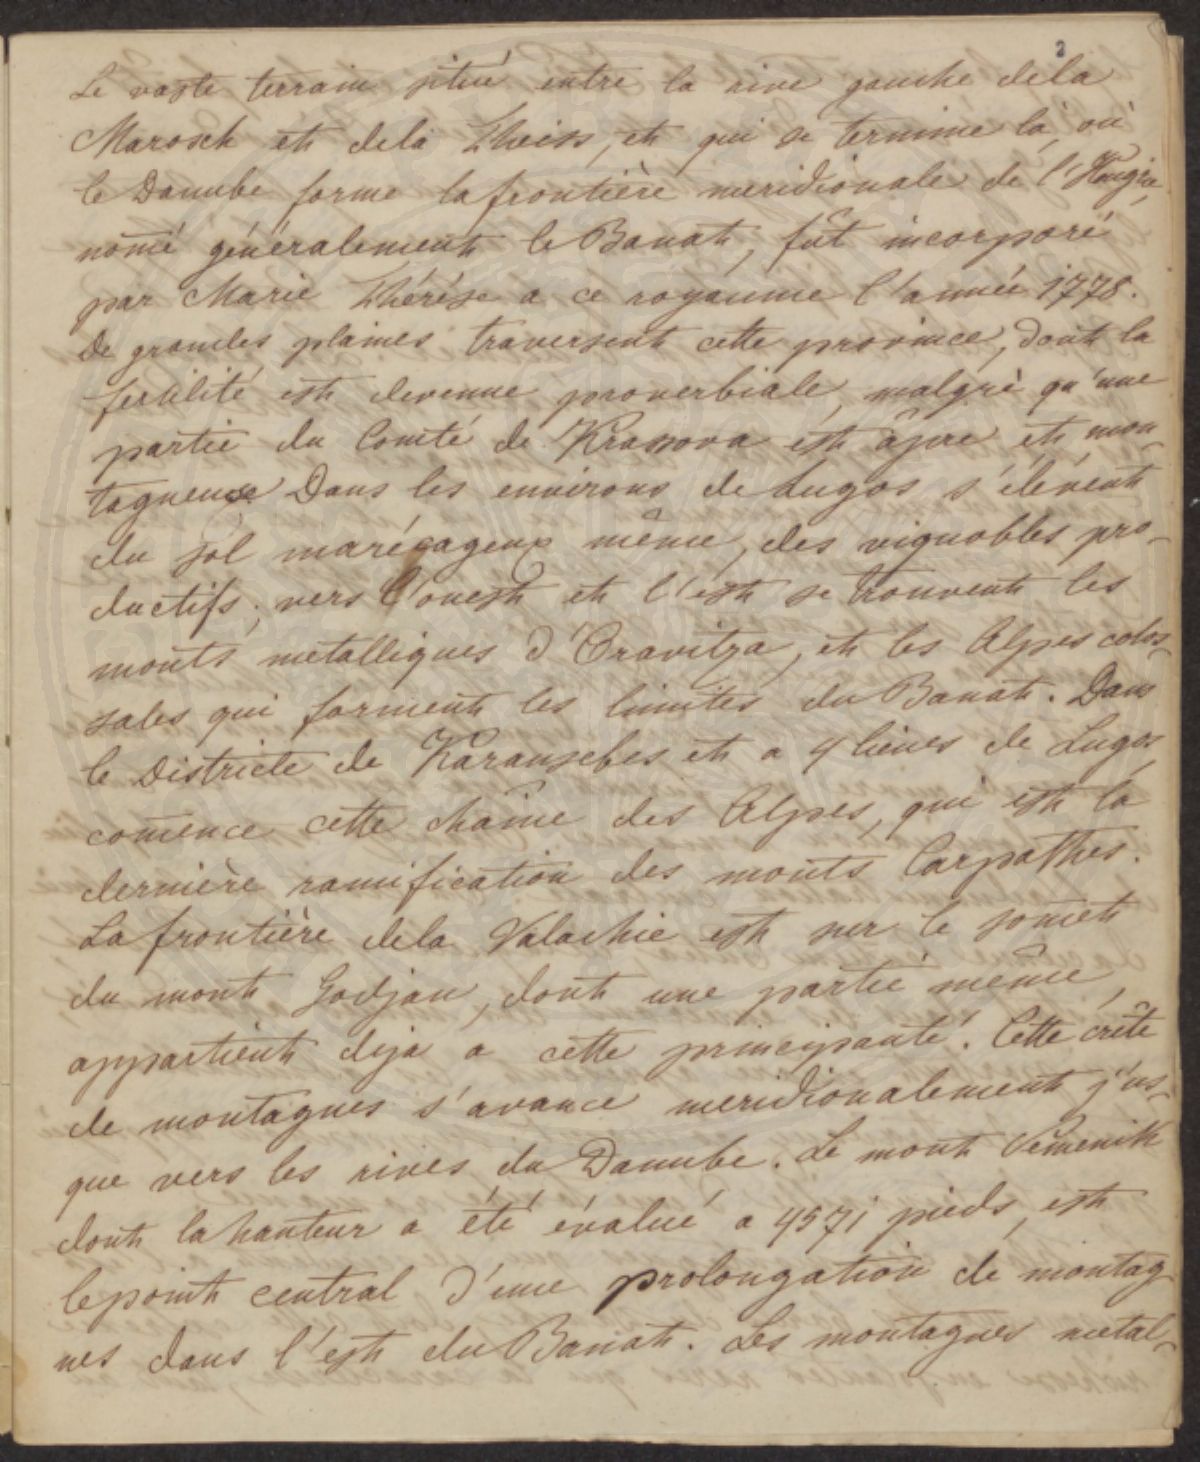 2
Le vaste terrain situé entre la rive gauche dela
Marosch et dela Theiss, et qui se termine là, où
le Danube forme la frontière meridionale de l'Hongrie,
nomé généralement le Banat, fût incorporé
par Marie Thérése a ce royaume l'année 1778.
De grandes plaines traversent cette province, dont la
fertilité est devenue proverbiale, malgré qu'une
partie du Comté de Krassova est âpre et mon-
tagneuse Dans les environs de Lugos s'élévent
du sol marécageux même, des vignobles pro-
ductifs; vers l'ouest et l'est se trouvent les
monts métalliques d'Oravitza, et les Alpes colos-
sales qui forment les limites du Banat. Dans
le Districte de Karansebes et a 4 lieues de Lugos
comence cette chaîne des Alpes, qui est la
dernière ramification des monts Carpathes.
La frontière dela Valachie est sur le somet
du mont Godjan, dont une partie même,
appartient deja a cette principauté. Cette crête
de montagnes s'avance meridionalement j'us-
que vers les rives du Danube. Le mont Semenik
dont la hauteur a été évalué a 4571 pieds, est
le point central d'une prolongation de montag
nes dans l'est du Banat. Les montagnes metal-